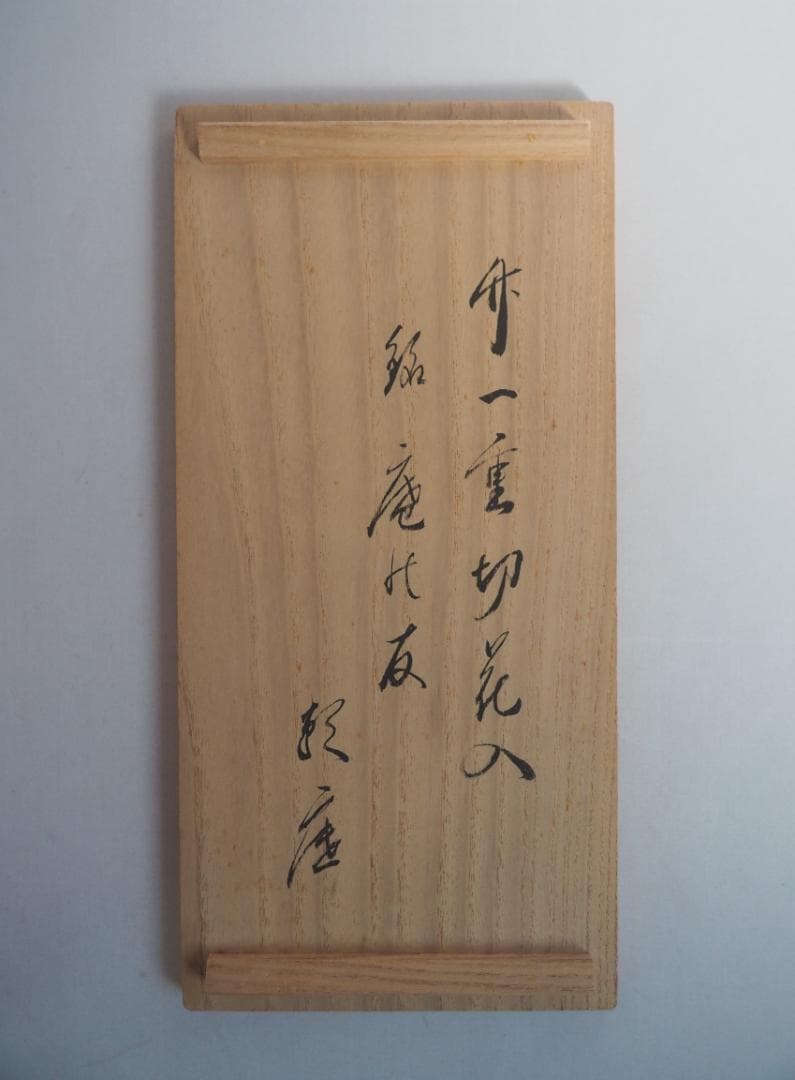 竹一重切花入
銘 庵の友
庵